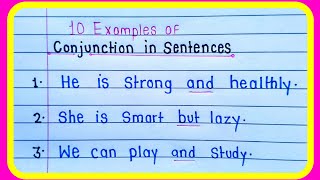 10 Examples of
Conjunction in Sentences
1. He is strong and healthly.
2. She is Smart but lazy.
3. We can play and Study.